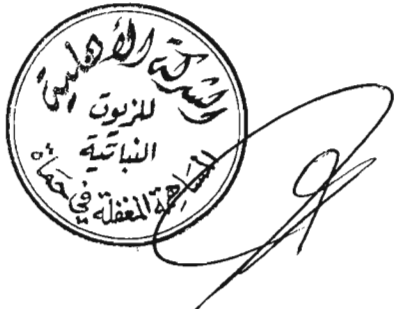 الشركة الأهلية
للزيوت
النباتية
المساهمة المغفلة في حماة